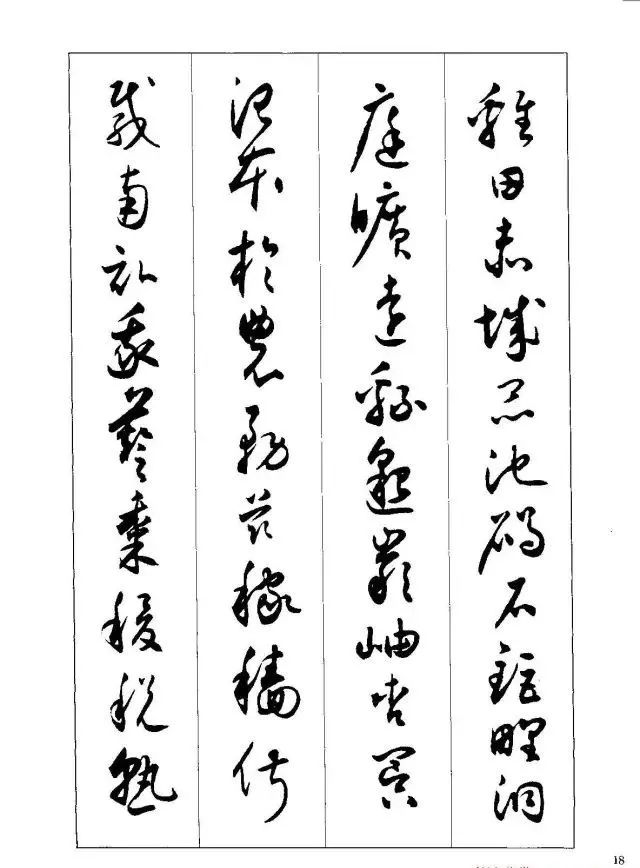 雞田赤城昆池碣石鉅野洞
庭曠遠緜邈巖岫杳冥
治本於農務茲稼穡俶
載南畝我藝黍稷稅熟
18